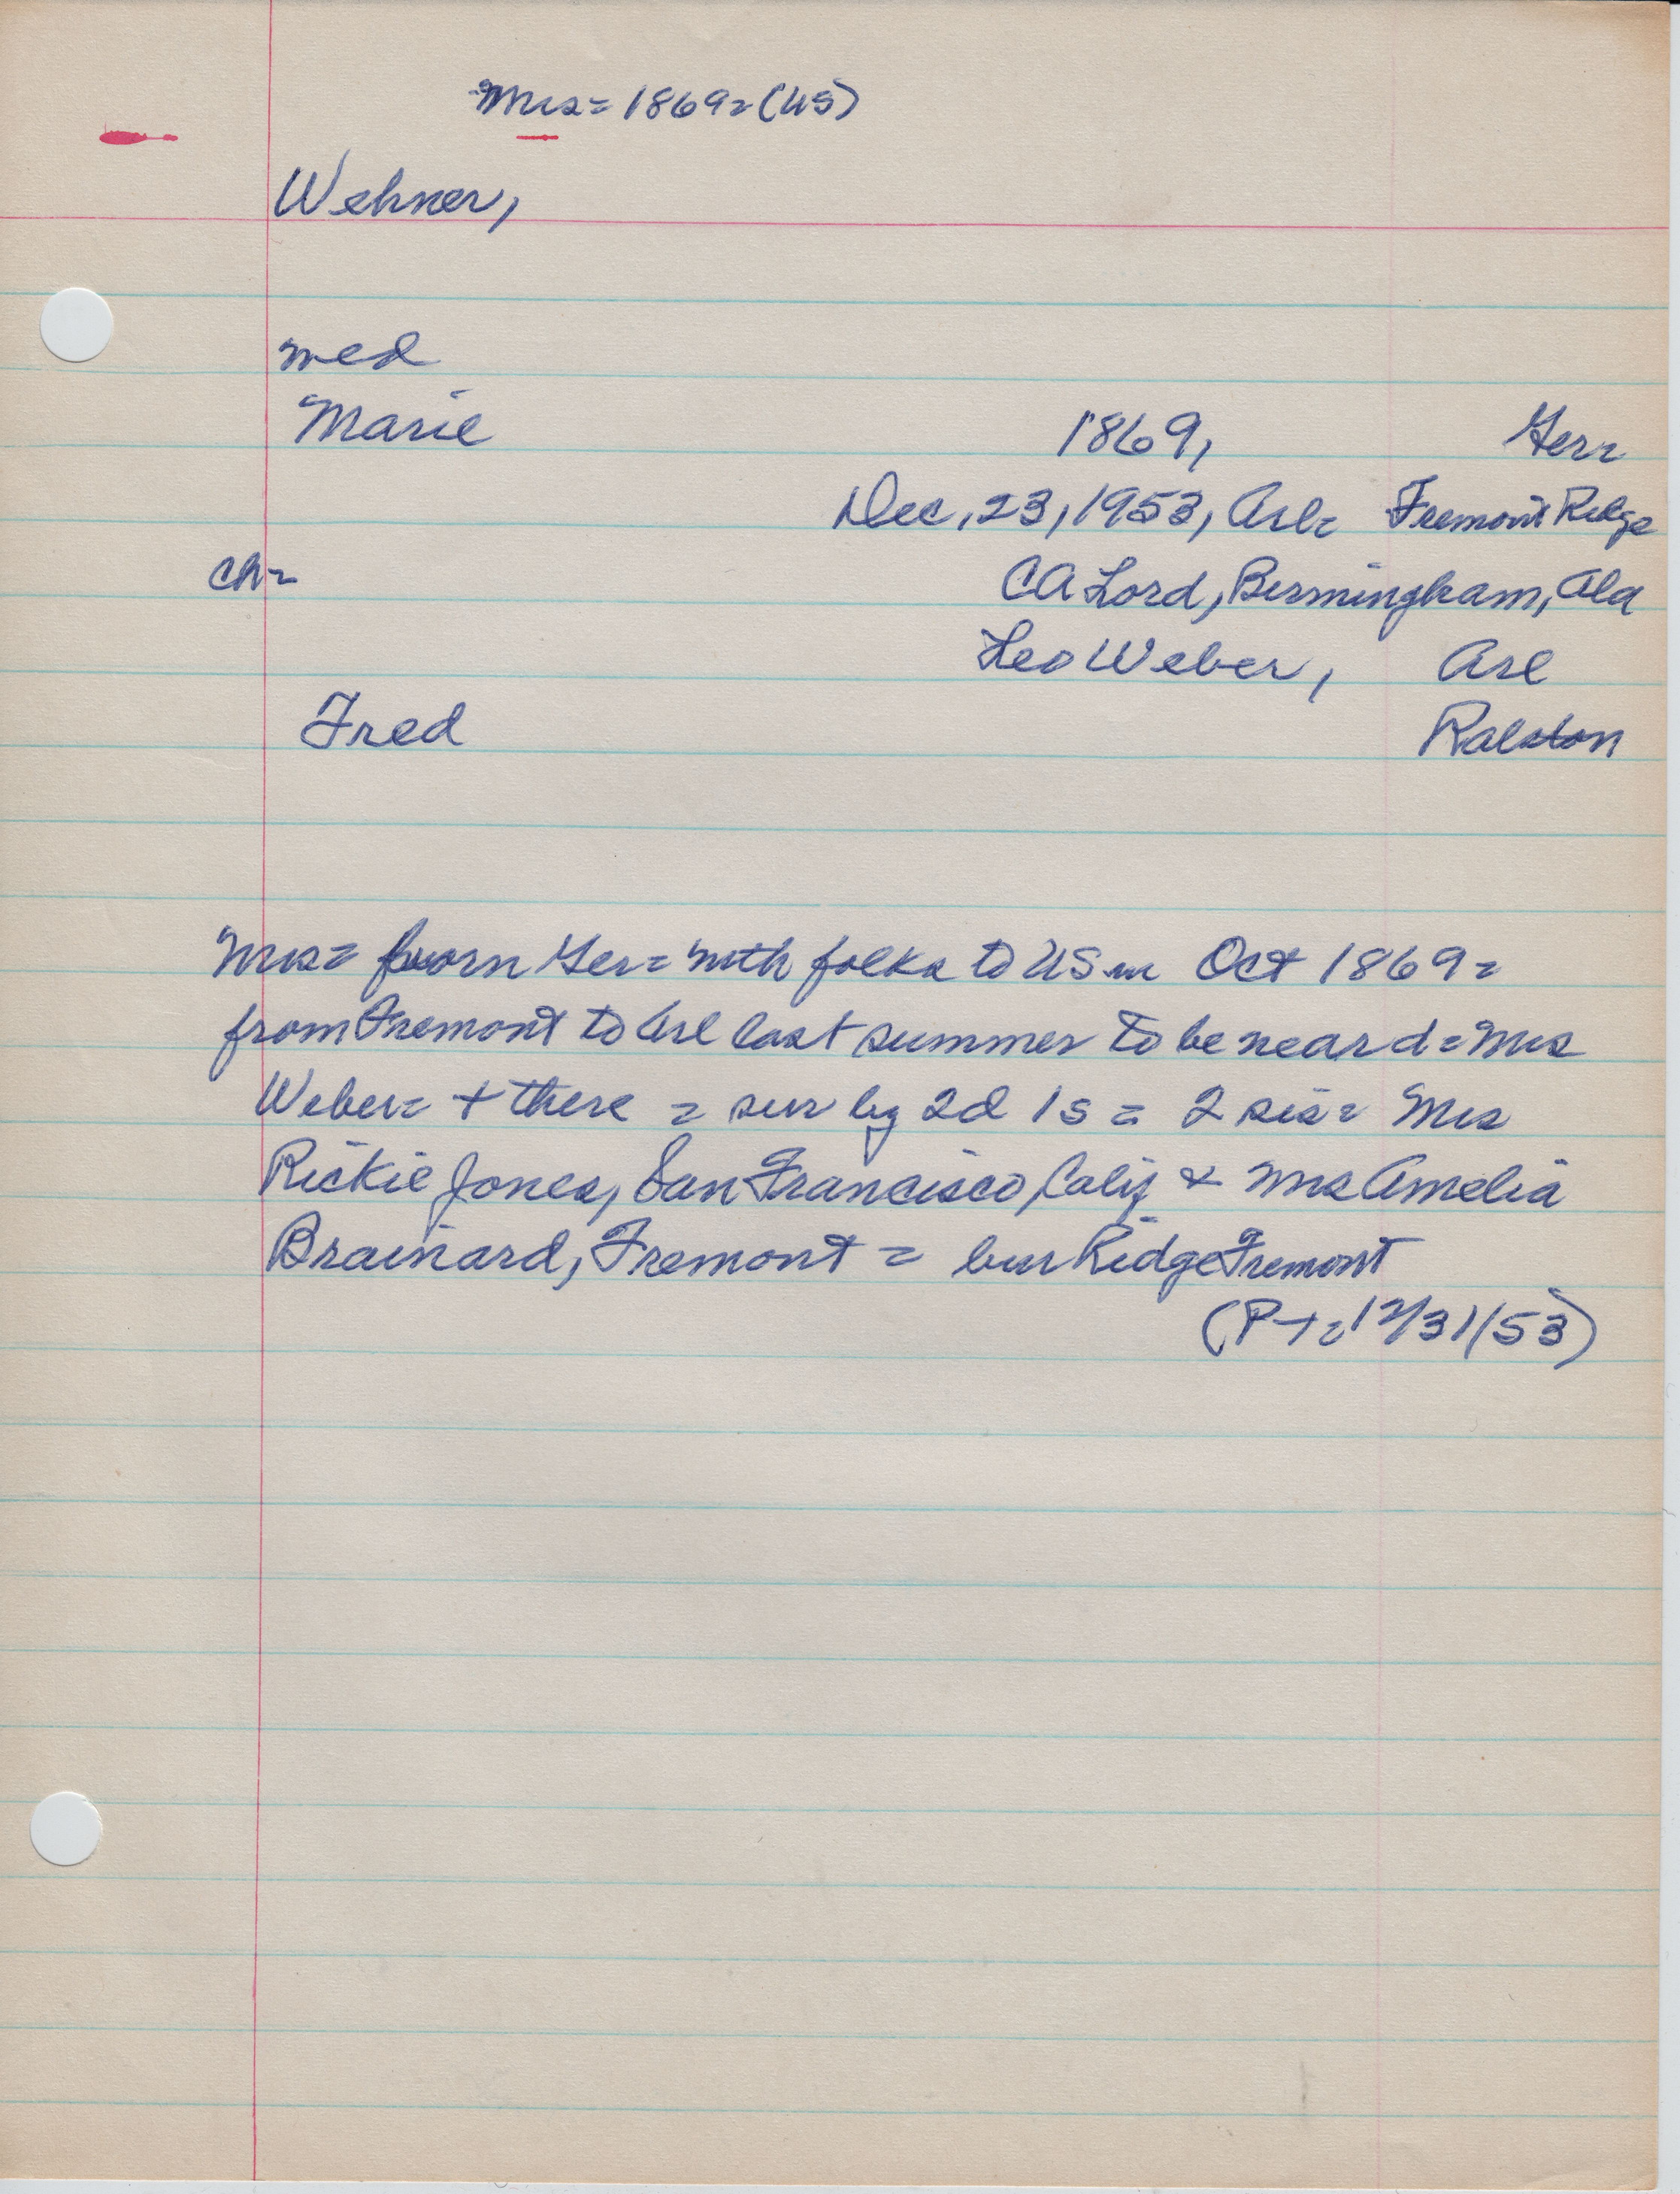 Mrs= 1869= (US)
Wehner,
med
Marie 1869, Ger=
Dec. 23, 1953, Arl= Fremont Ridge
ch= CA Lord, Birmingham, Ala
Leo Weber, Arl
Fred Ralston
Mrs= born Ger= with folks to US in Oct 1869=
from Fremont to Arl last summer to be near d= Mrs
Weber= + there = sur by 2d 1s = 2 sis= Mrs
Rickie Jones, San Francisco, Calif & Mrs Amelia
Brainard, Fremont = bur Ridge Fremont
(P-t= 12/31/53)